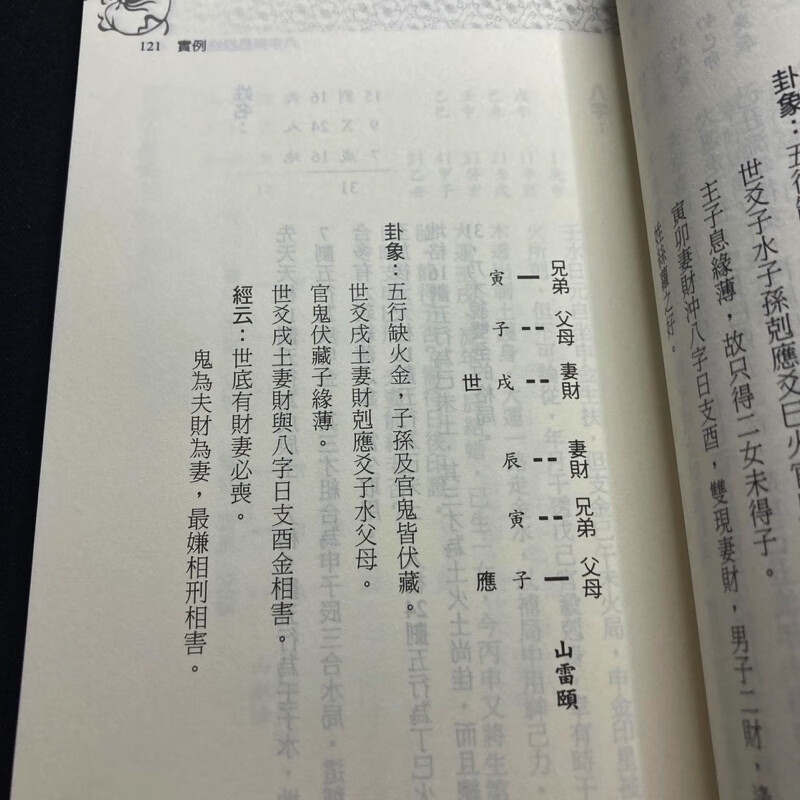 卦象：五行
世爻子水子孫剋應爻巳火官
主子息緣薄，故只得二女未得子。
寅卯妻財沖八字日支酉，雙現妻財，男子二財，
121 實例
兄弟 寅
父母 子
妻財 戌 世
妻財 辰
兄弟 寅
父母 子 應
山雷頤
卦象：五行缺火金，子孫及官鬼皆伏藏。
世爻戌土妻財剋應爻子水父母。
官鬼伏藏子緣薄。
世爻戌土妻財與八字日支酉金相害。
經云：世底有財妻必喪。
鬼為夫財為妻，最嫌相刑相害。